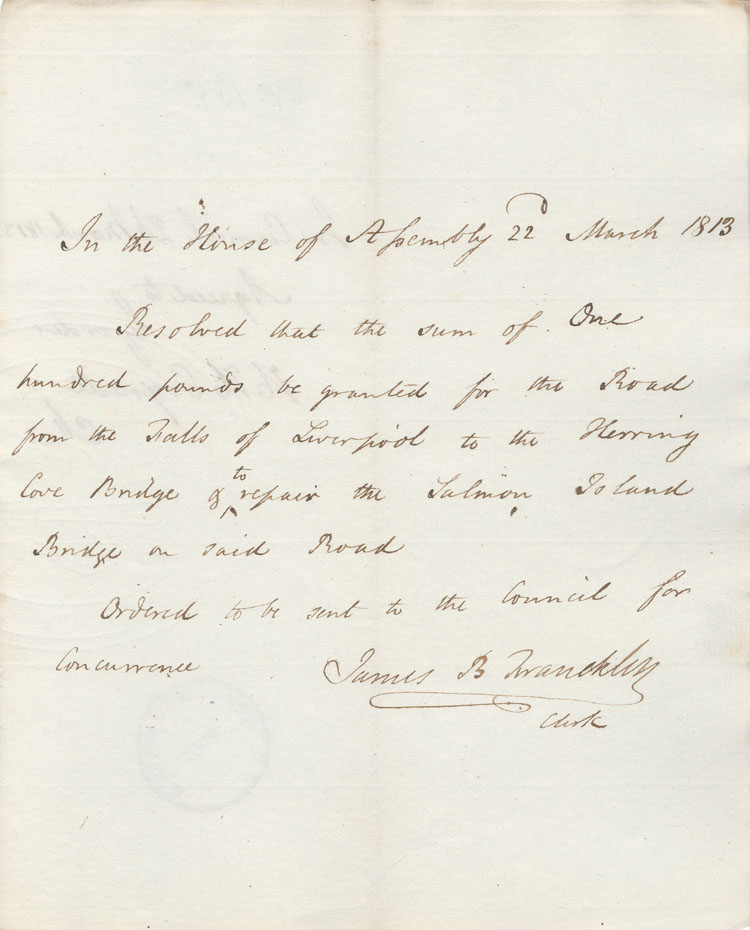 In the House of Assembly 22d March 1813
Resolved that the sum of One
hundred pounds be granted for the Road
from the Falls of Liverpool to the Herring
Cove Bridge & to repair the Salmon Island
Bridge on said Road
Ordered to be sent to the Council for
Concurrence
James B Franklin
Clerk